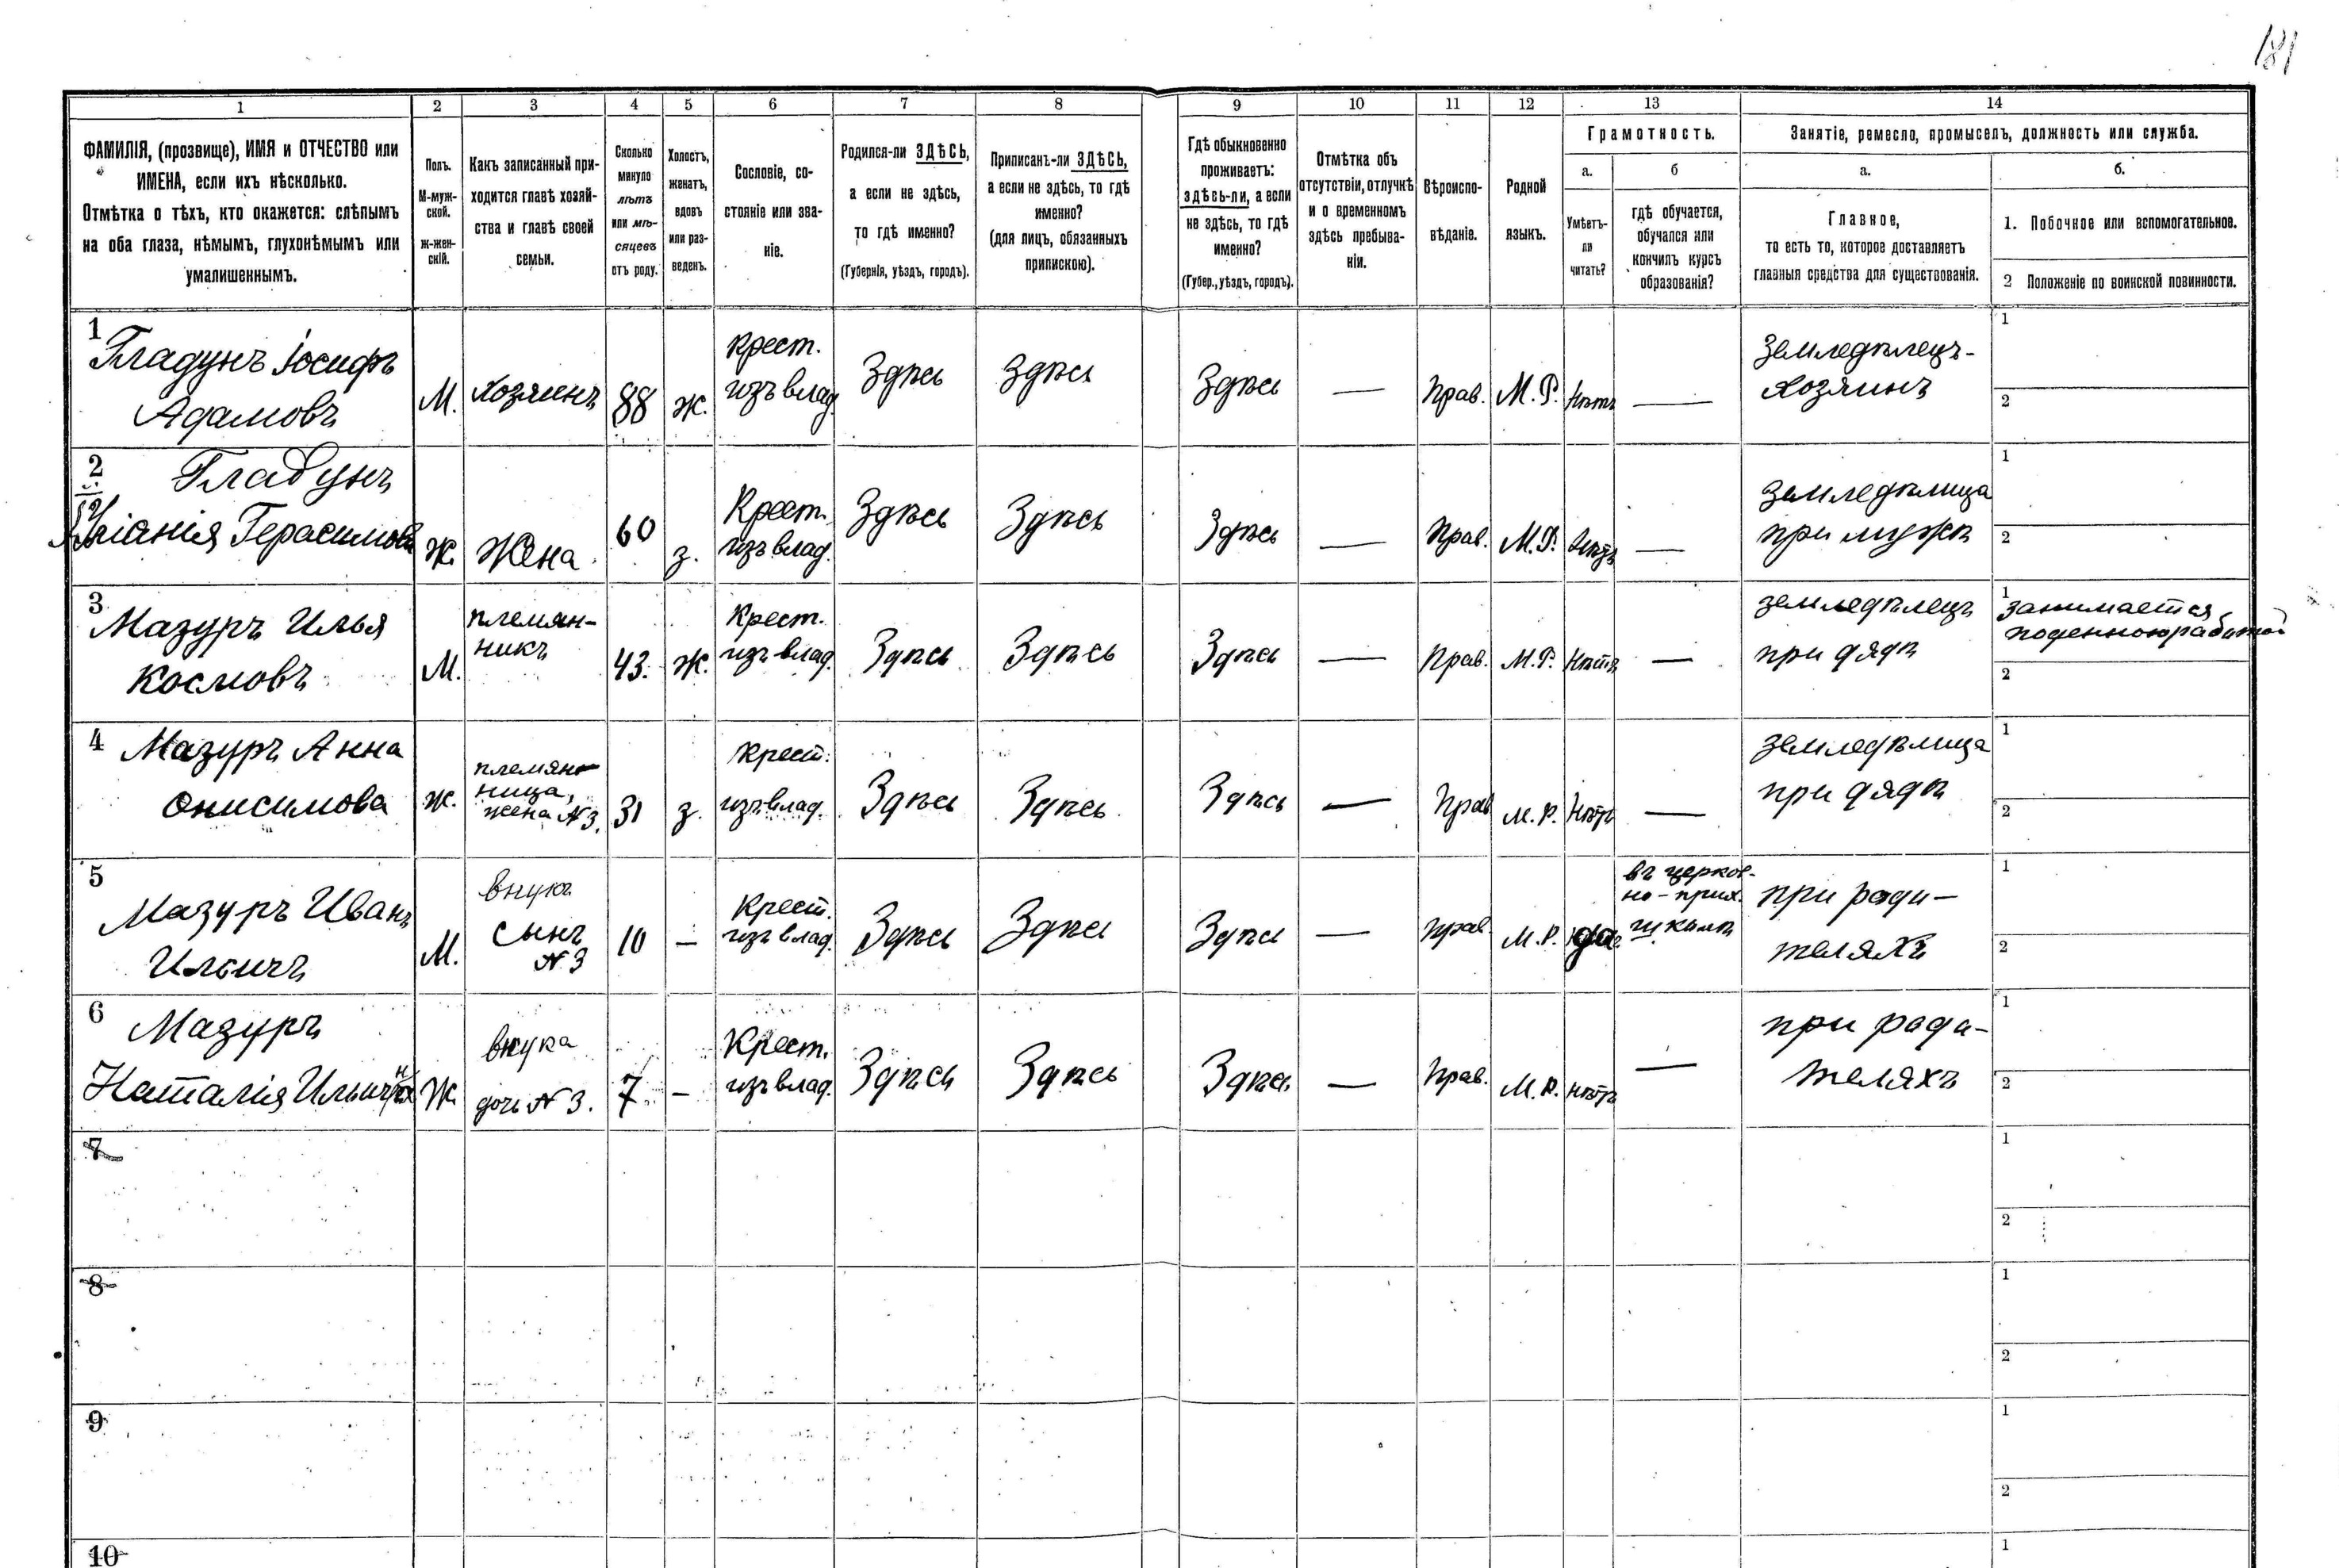 181
1 2 3 4 5 6 7 8 9 10 11 12 13 14
ФАМИЛІЯ, (прозвище), ИМЯ и ОТЧЕСТВО или
ИМЕНА, если ихъ нѣсколько.
Отмѣтка о тѣхъ, кто окажется: слѣпымъ
на оба глаза, нѣмымъ, глухонѣмымъ или
умалишеннымъ.
Полъ.
М-муж-
ской.
ж-жен-
скій.
Какъ записанный при-
ходится главѣ хозяй-
ства и главѣ своей
семьи.
Сколько
минуло
лѣтъ
или мѣ-
сяцевъ
отъ роду.
Холостъ,
женатъ,
вдовъ
или раз-
веденъ.
Сословіе, со-
стояніе или зва-
ніе.
Родился-ли ЗДѢСЬ,
а если не здѣсь,
то гдѣ именно?
(Губернія, уѣздъ, городъ).
Приписанъ-ли ЗДѢСЬ,
а если не здѣсь, то гдѣ
именно?
(для лицъ, обязанныхъ
припискою).
Гдѣ обыкновенно
проживаетъ:
здѣсь-ли, а если
не здѣсь, то гдѣ
именно?
(Губер., уѣздъ, городъ).
Отмѣтка объ
отсутствіи, отлучкѣ
и о временномъ
здѣсь пребыва-
ніи.
Вѣроиспо-
вѣданіе.
Родной
языкъ.
Грамотность.
а.
Умѣетъ-
ли
читать?
б
гдѣ обучается,
обучался или
кончилъ курсъ
образованія?
Занятіе, ремесло, промыселъ, должность или служба.
а.
Главное,
то есть то, которое доставляетъ
главныя средства для существованія.
б.
1. Побочное или вспомогательное.
2 Положеніе по воинской повинности.
1
Гладунъ Іосифъ
Адамовъ
М.
Хозяинъ
88
ж.
Крест.
изъ влад.
Здѣсь
Здѣсь
Здѣсь
—
Прав.
М. Р.
Нѣтъ
—
Земледѣлецъ-
Хозяинъ
1
2
2
Гладунъ
Герасимова
Ж.
Жена
60
з.
Крест.
изъ влад.
Здѣсь
Здѣсь
Здѣсь
—
Прав.
М. Р.
Нѣтъ
—
Земледѣлица
при мужѣ
1
2
3
Мазуръ Илья
Космовъ
М.
племян-
никъ
43.
Ж.
Крест.
изъ влад.
Здѣсь
Здѣсь
Здѣсь
—
Прав.
М. Р.
Нѣтъ
—
земледѣлецъ
при дядѣ
1
занимается
поденною работой
2
4
Мазуръ Анна
Онисимова
ж.
племян-
ница,
жена № 3.
31
з.
Крест.
изъ влад.
Здѣсь
Здѣсь
Здѣсь
—
Прав
М. Р.
Нѣтъ
—
Земледѣлица
при дядѣ
1
2
5
Мазуръ Иванъ
Ильичъ
М.
внукъ
Сынъ
№ 3
10
—
Крест.
изъ влад.
Здѣсь
Здѣсь
Здѣсь
—
Прав.
М. Р.
да
въ церков-
но-прих.
школѣ
при роди-
теляхъ
1
2
6
Мазуръ
Наталія
Ж.
внука
дочь № 3.
7.
—
Крест.
изъ влад.
Здѣсь
Здѣсь
Здѣсь
—
Прав.
М. Р.
Нѣтъ
—
при роди-
теляхъ
1
2
7
1
2
8
1
2
9
1
2
10
1